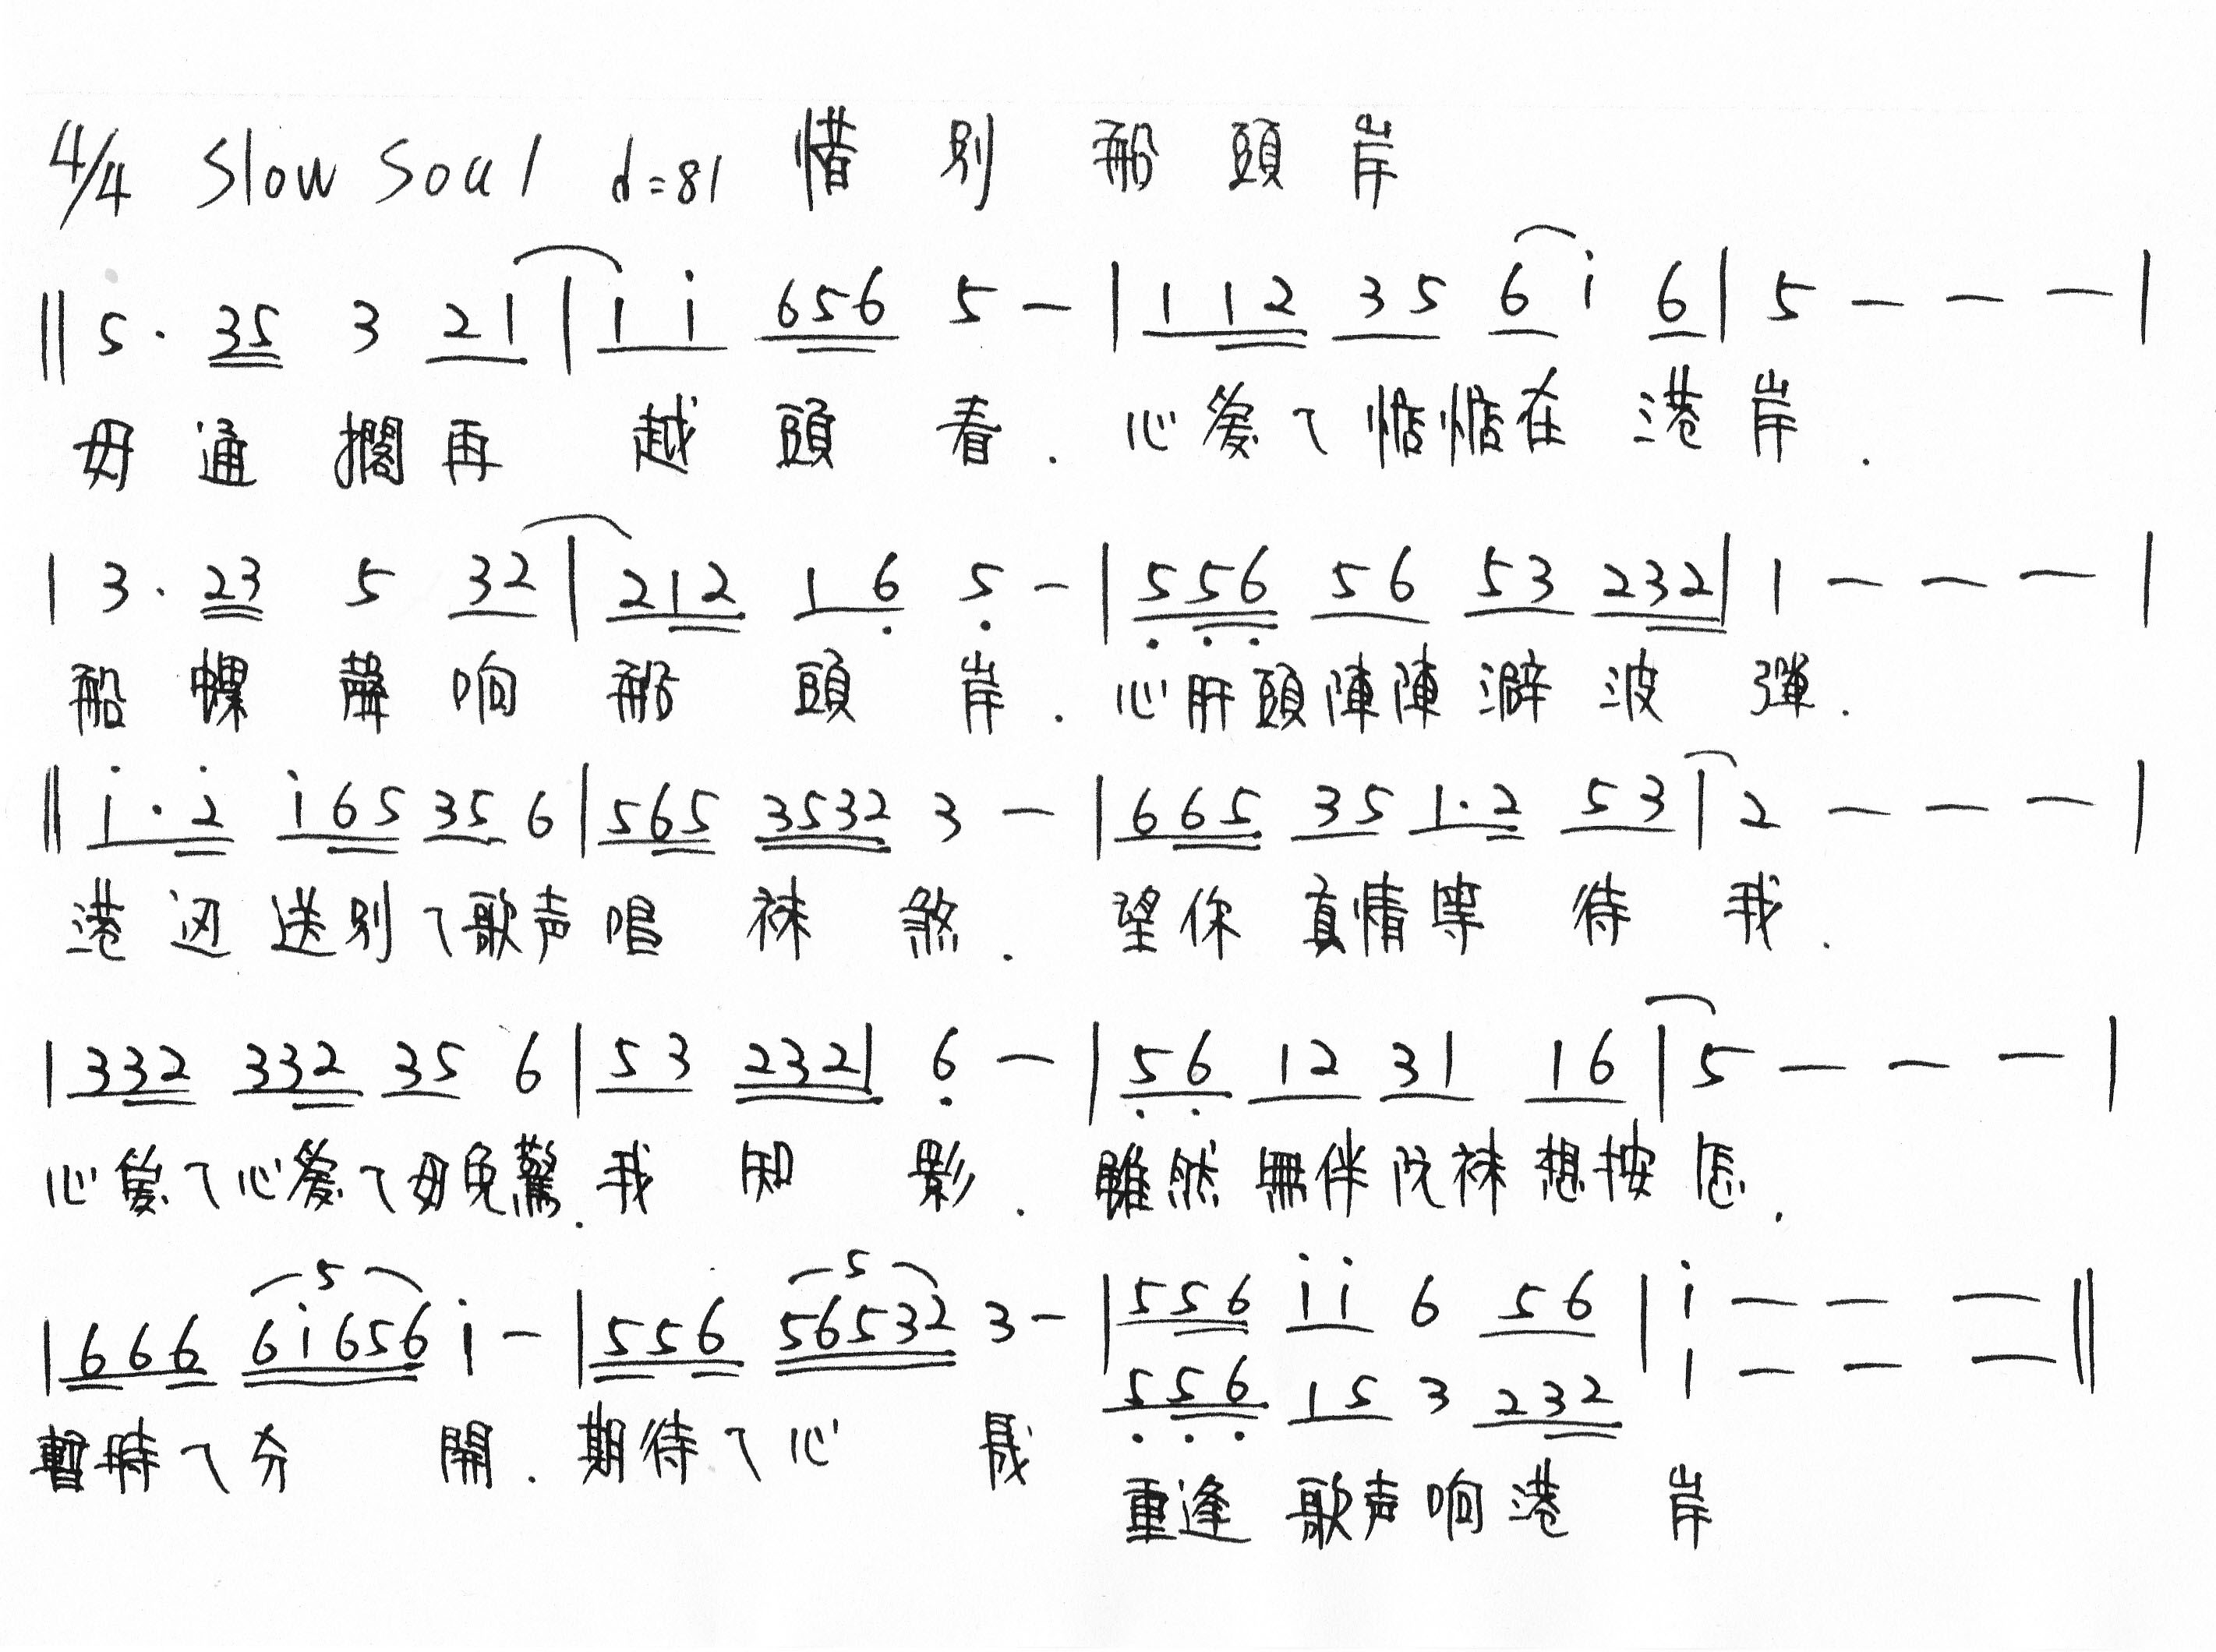 4/4 Slow Soul d=81 惜別船頭岸
‖ 5 · 35 3 21 | 1 i 656 5 — | 1 12 35 6 i 6 | 5 — — — |
毋通擱再越頭看. 心爱ㄟ惦惦在港岸.
| 3 · 23 5 32 | 212 16 5 — | 556 56 53 232 | 1 — — — |
船螺聲响船頭岸. 心肝頭陣陣澼波彈.
‖ i · 2 i65 35 6 | 565 3532 3 — | 665 35 1·2 53 | 2 — — — |
港边送別ㄟ歌声唱袜煞. 望你真情等待我.
| 332 332 35 6 | 53 2321 6 — | 56 12 31 16 | 5 — — — |
心爱ㄟ心爱ㄟ毋免驚. 我知影. 雖然無伴阮袜想按怎.
5 5
| 666 6i656 i — | 556 56532 3 — | 556 ii 6 56 | i — — — ‖
556 15 3 232 1 — — —
暫時ㄟ分開. 期待ㄟ心晟
重逢歌声响港岸